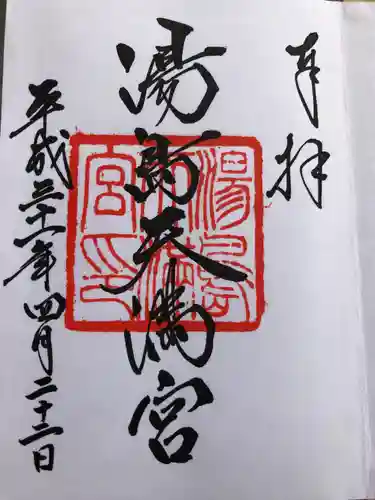 奉拝
湯島天満宮
湯島天満宮印
平成三十一年四月二十二日